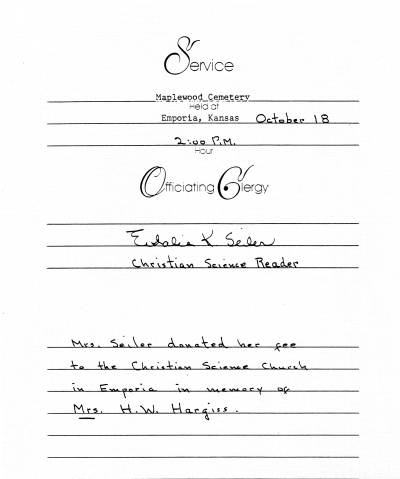 Service
Maplewood Cemetery
Held at
Emporia, Kansas October 18
2:00 P.M.
Hour
Officiating Clergy
Eudalia K. Seiler
Christian Science Reader
Mrs. Seiler donated her fee
to the Christian Science Church
in Emporia in memory of
Mrs. H.W. Hargiss.